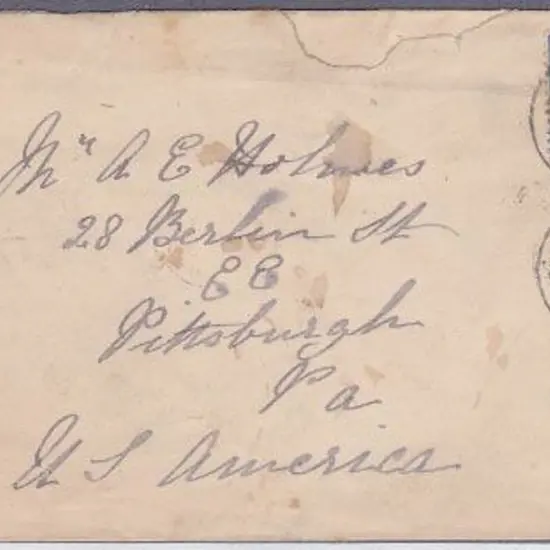 Mr A E Holmes
28 Berlin St
E E
Pittsburgh
Pa
U S America